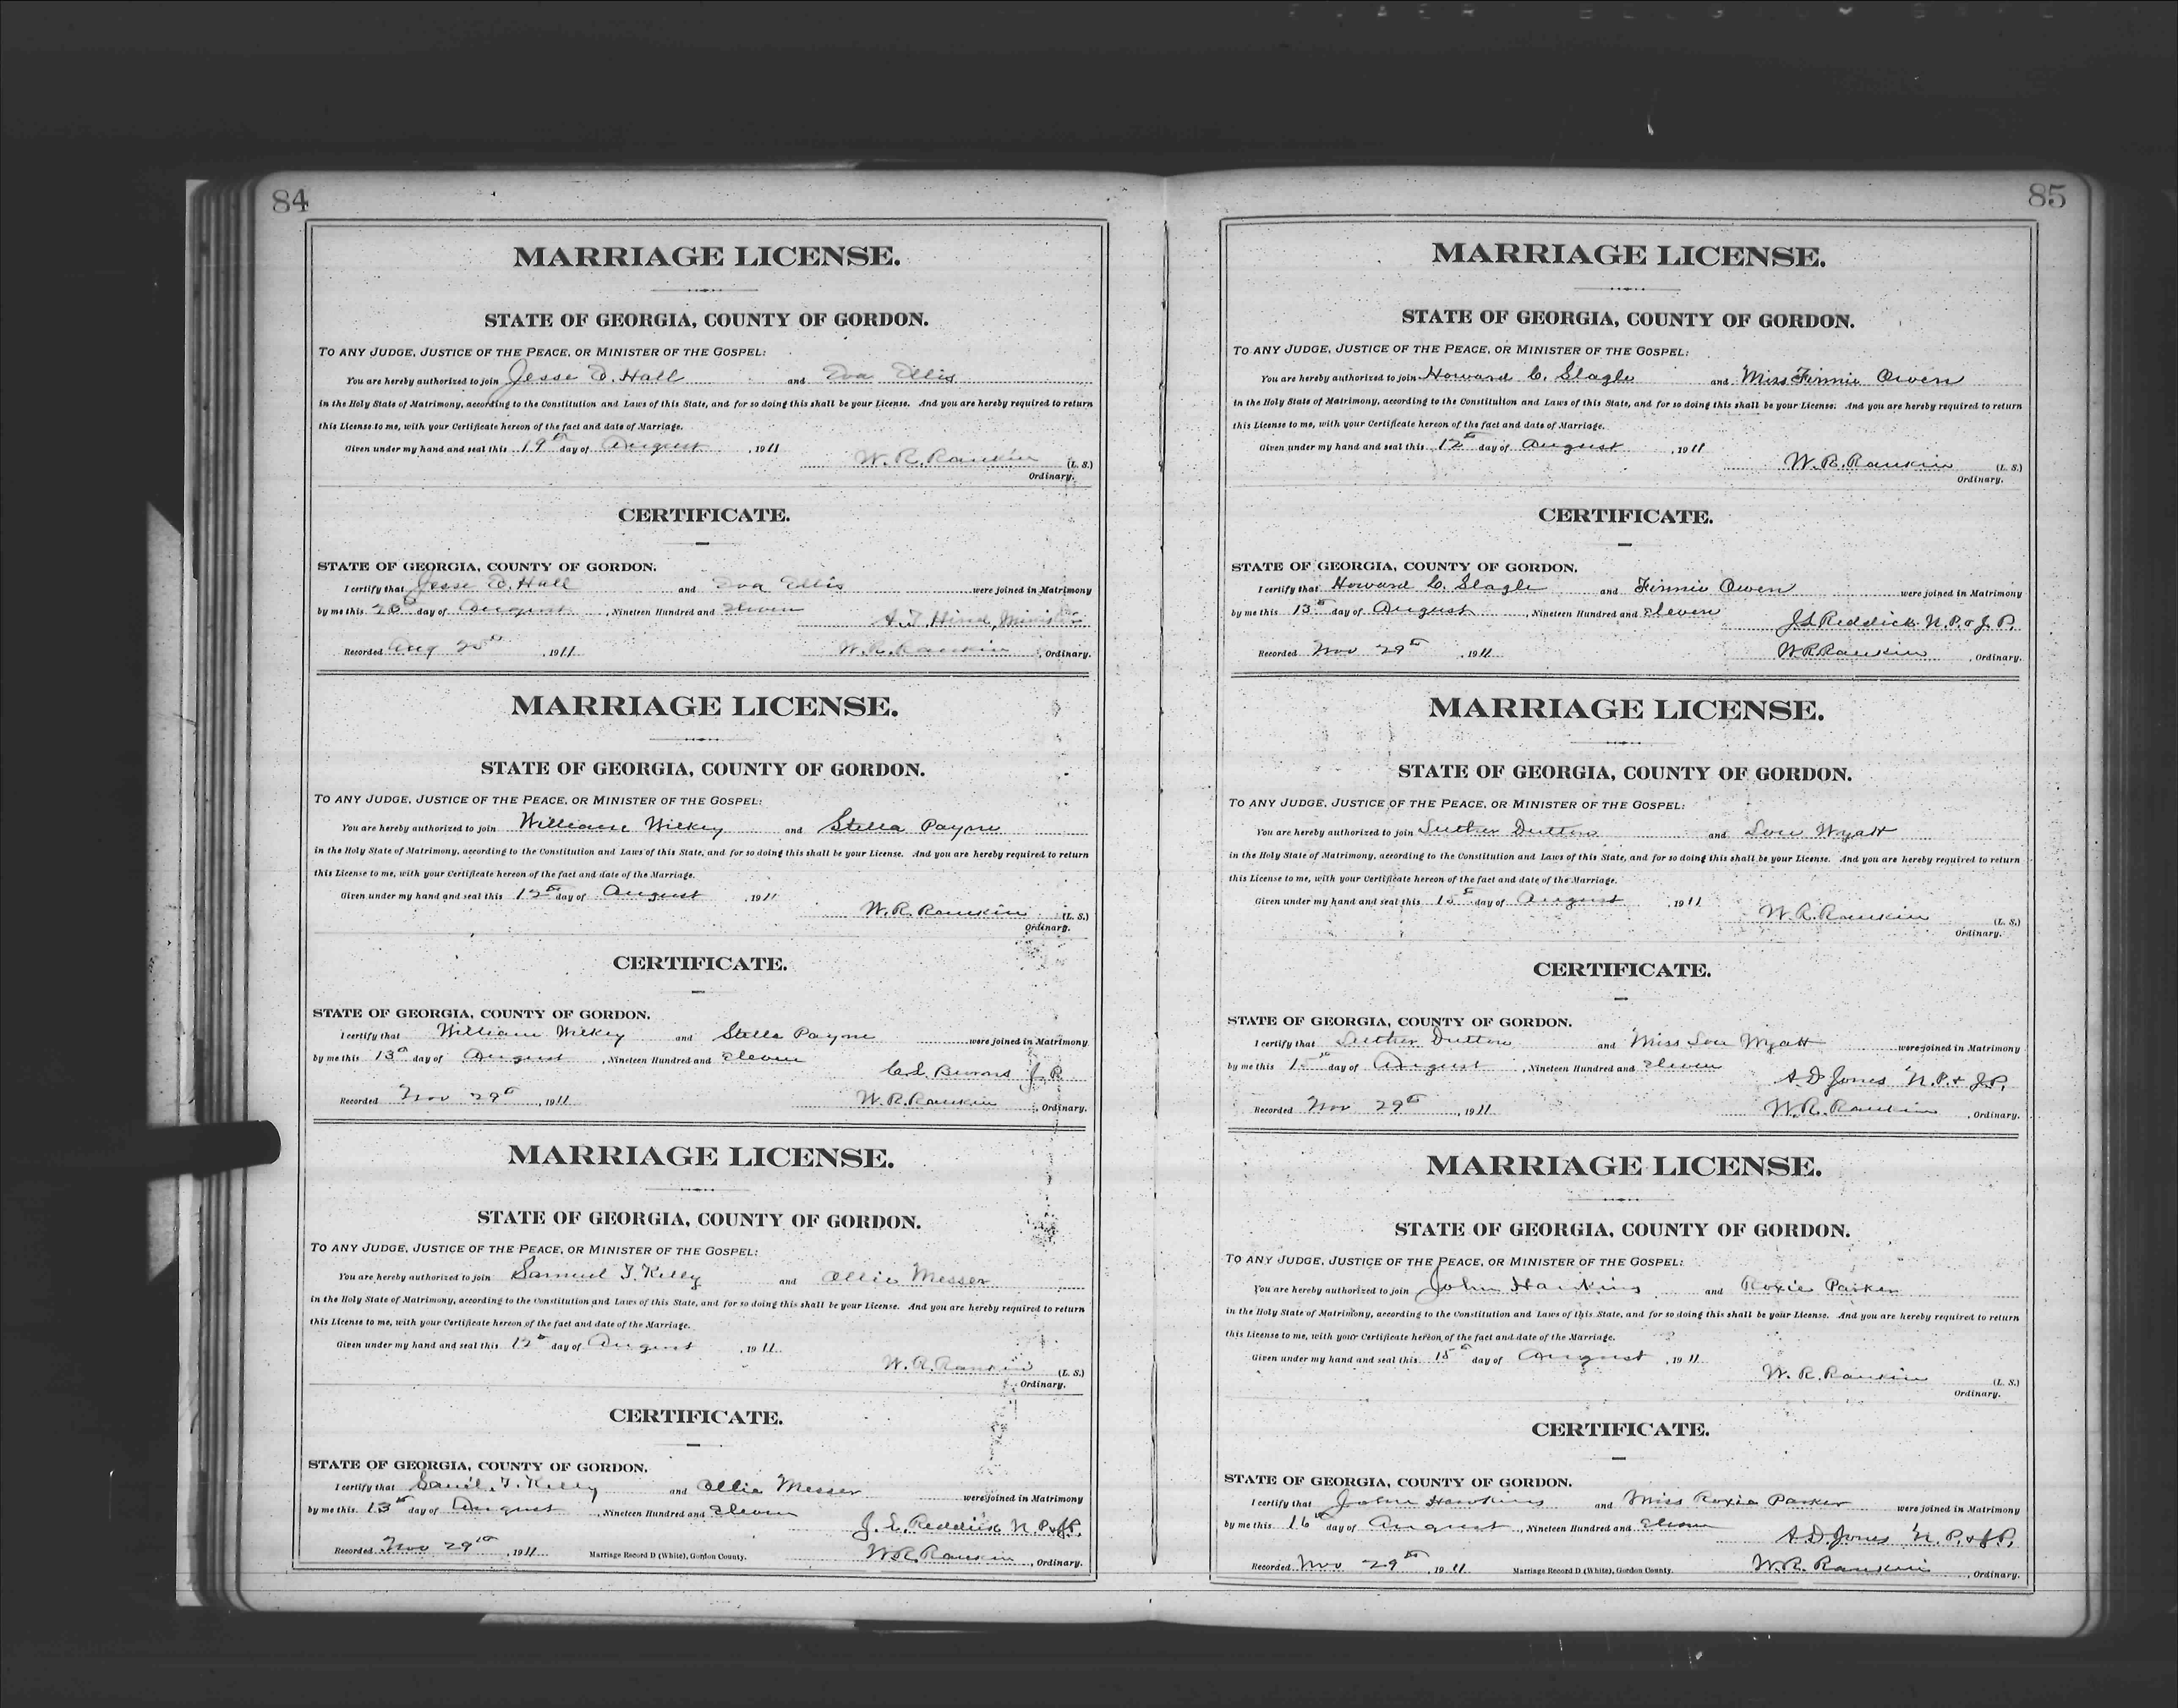 84
MARRIAGE LICENSE.
STATE OF GEORGIA, COUNTY OF GORDON.
TO ANY JUDGE, JUSTICE OF THE PEACE, OR MINISTER OF THE GOSPEL:
You are hereby authorized to join Jesse D. Hall and Eva Ellis
in the Holy State of Matrimony, according to the Constitution and Laws of this State, and for so doing this shall be your License. And you are hereby required to return
this License to me, with your Certificate hereon of the fact and date of Marriage.
Given under my hand and seal this 19th day of August, 1911
W. R. Rankin (L. S.)
Ordinary.
CERTIFICATE.
STATE OF GEORGIA, COUNTY OF GORDON.
I certify that Jesse D. Hall and Eva Ellis were joined in Matrimony
by me this 20th day of August, Nineteen Hundred and Eleven
A. T. Hind, Minister
Recorded Aug 25th, 1911 W. R. Rankin, Ordinary.
MARRIAGE LICENSE.
STATE OF GEORGIA, COUNTY OF GORDON.
TO ANY JUDGE, JUSTICE OF THE PEACE, OR MINISTER OF THE GOSPEL:
You are hereby authorized to join William Wilkey and Stella Payne
in the Holy State of Matrimony, according to the Constitution and Laws of this State, and for so doing this shall be your License. And you are hereby required to return
this License to me, with your Certificate hereon of the fact and date of the Marriage.
Given under my hand and seal this 12th day of August, 1911
W. R. Rankin (L. S.)
Ordinary.
CERTIFICATE.
STATE OF GEORGIA, COUNTY OF GORDON.
I certify that William Wilkey and Stella Payne were joined in Matrimony
by me this 13th day of August, Nineteen Hundred and Eleven
C. L. Burns J. P.
Recorded Nov 29th, 1911 W. R. Rankin, Ordinary.
MARRIAGE LICENSE.
STATE OF GEORGIA, COUNTY OF GORDON.
TO ANY JUDGE, JUSTICE OF THE PEACE, OR MINISTER OF THE GOSPEL:
You are hereby authorized to join Samuel T. Kelly and Ollie Messer
in the Holy State of Matrimony, according to the Constitution and Laws of this State, and for so doing this shall be your License. And you are hereby required to return
this License to me, with your Certificate hereon of the fact and date of the Marriage.
Given under my hand and seal this 12th day of August, 1911
W. R. Rankin (L. S.)
Ordinary.
CERTIFICATE.
STATE OF GEORGIA, COUNTY OF GORDON.
I certify that Sam'l. T. Kelly and Ollie Messer were joined in Matrimony
by me this 13th day of August, Nineteen Hundred and Eleven
J. L. Reddick N. P. & J. P.
Recorded Nov 29th, 1911 Marriage Record D (White), Gordon County. W. R. Rankin, Ordinary.
85
MARRIAGE LICENSE.
STATE OF GEORGIA, COUNTY OF GORDON.
TO ANY JUDGE, JUSTICE OF THE PEACE, OR MINISTER OF THE GOSPEL:
You are hereby authorized to join Howard C. Slagle and Miss Finnie Owen
in the Holy State of Matrimony, according to the Constitution and Laws of this State, and for so doing this shall be your License. And you are hereby required to return
this License to me, with your Certificate hereon of the fact and date of Marriage.
Given under my hand and seal this 12th day of August, 1911
W. R. Rankin (L. S.)
Ordinary.
CERTIFICATE.
STATE OF GEORGIA, COUNTY OF GORDON.
I certify that Howard C. Slagle and Finnie Owen were joined in Matrimony
by me this 13th day of August, Nineteen Hundred and Eleven
J L Reddick N. P. & J. P.
Recorded Nov 29th, 1911 W. R. Rankin, Ordinary.
MARRIAGE LICENSE.
STATE OF GEORGIA, COUNTY OF GORDON.
TO ANY JUDGE, JUSTICE OF THE PEACE, OR MINISTER OF THE GOSPEL:
You are hereby authorized to join Luther Dutton and Lou Wyatt
in the Holy State of Matrimony, according to the Constitution and Laws of this State, and for so doing this shall be your License. And you are hereby required to return
this License to me, with your Certificate hereon of the fact and date of the Marriage.
Given under my hand and seal this 15th day of August, 1911
W. R. Rankin (L. S.)
Ordinary.
CERTIFICATE.
STATE OF GEORGIA, COUNTY OF GORDON.
I certify that Luther Dutton and Miss Lou Wyatt were joined in Matrimony
by me this 15th day of August, Nineteen Hundred and Eleven
A. D. Jones N. P. & J. P.
Recorded Nov 29th, 1911 W. R. Rankin, Ordinary.
MARRIAGE LICENSE.
STATE OF GEORGIA, COUNTY OF GORDON.
TO ANY JUDGE, JUSTICE OF THE PEACE, OR MINISTER OF THE GOSPEL:
You are hereby authorized to join John Hawkins and Roxie Parker
in the Holy State of Matrimony, according to the Constitution and Laws of this State, and for so doing this shall be your License. And you are hereby required to return
this License to me, with your Certificate hereon of the fact and date of the Marriage.
Given under my hand and seal this 15th day of August, 1911
W. R. Rankin (L. S.)
Ordinary.
CERTIFICATE.
STATE OF GEORGIA, COUNTY OF GORDON.
I certify that John Hawkins and Miss Roxie Parker were joined in Matrimony
by me this 16th day of August, Nineteen Hundred and Eleven
A. D. Jones N. P. & J. P.
Recorded Nov 29th, 1911 Marriage Record D (White), Gordon County. W. R. Rankin, Ordinary.